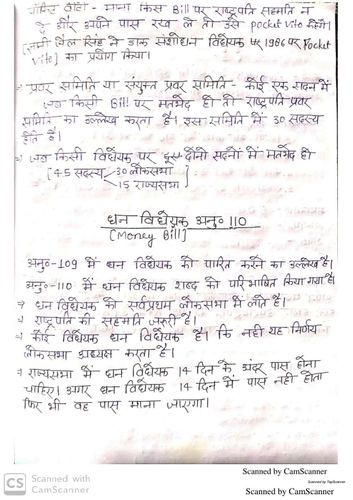 पॉकेट वीटो - माना किस Bill पर राष्ट्रपति सहमति न
दे और अपने पास रख ले तो उसे pocket vito कहेंगे।
[ज्ञानी जैल सिंह ने डाक संशोधन विधेयक पर 1986 पर Pocket
vito] का प्रयोग किया।
→ प्रवर समिति या संयुक्त प्रवर समिति - कोई एक सदन में
जब किसी Bill पर मतभेद हो तो राष्ट्रपति प्रवर
समिति का उल्लेख करता है। इस समिति में 30 सदस्य
होते है।
→ जब किसी विधेयक पर इस दोनो सदनों में मतभेद हो
[45 सदस्य 30 लोकसभा
15 राज्यसभा
धन विधेयक अनु० 110
[Money Bill]
अनु०-109 में धन विधेयक को पारित करने का उल्लेख है।
अनु०-110 में धन विधेयक शब्द को परिभाषित किया गया है।
→ धन विधेयक को सर्वप्रथम लोकसभा में लाते है।
→ राष्ट्रपति की सहमति जरूरी है।
→ कोई विधेयक धन विधेयक है। कि नही यह निर्णय
लोकसभा अध्यक्ष करता है।
→ राज्यसभा में धन विधेयक 14 दिन के अंदर पास होना
चाहिए। अगर धन विधेयक 14 दिन में पास नही होता
फिर भी वह पास माना जाएगा।
Scanned by CamScanner
Scanned by TapScanner
CS Scanned with
CamScanner
Scanned by CamScanner